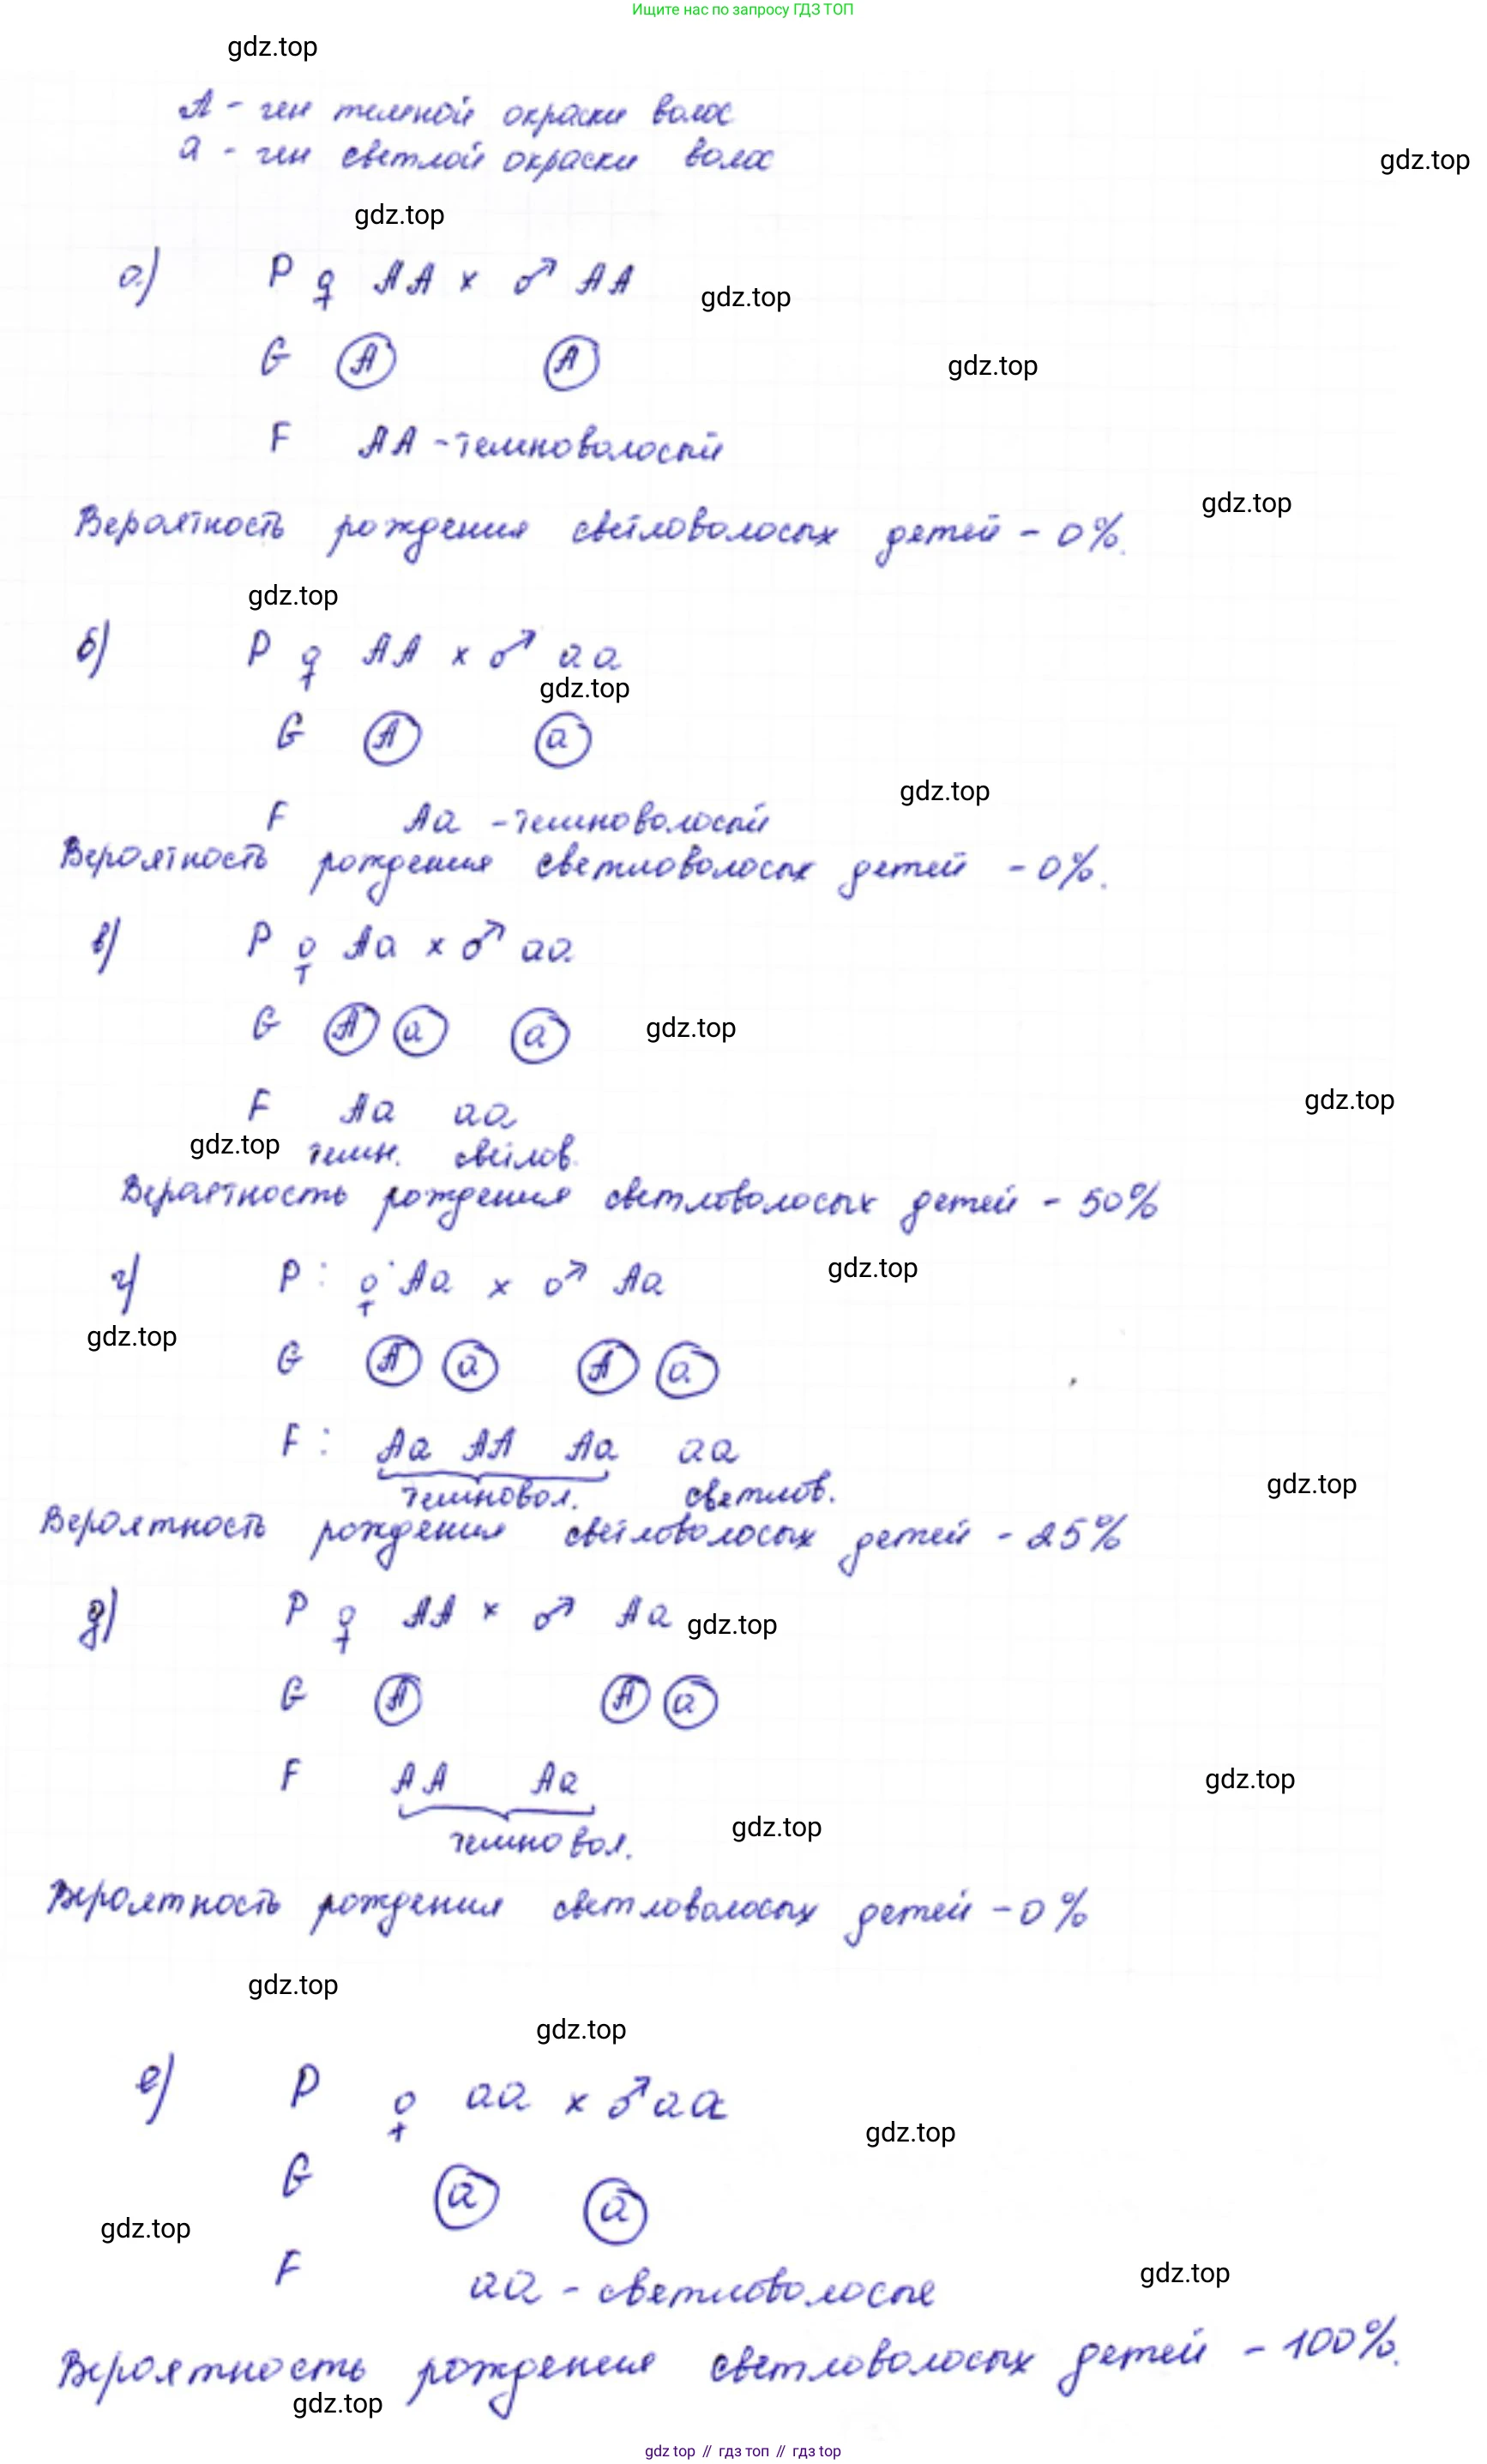 Ищите нас по запросу ГДЗ ТОП
gdz.top
А - ген темной окраски волос
а - ген светлой окраски волос
gdz.top
gdz.top
а) P ♀ АА × ♂ АА
gdz.top
G А А
gdz.top
F АА - темноволосый
gdz.top
Вероятность рождения светловолосых детей - 0%.
gdz.top
б) P ♀ АА × ♂ аа
gdz.top
G А а
gdz.top
F Аа - темноволосый
Вероятность рождения светловолосых детей - 0%.
в) P ♀ Аа × ♂ аа
G А а а
gdz.top
gdz.top
F Аа аа
gdz.top
темн. светлов.
Вероятность рождения светловолосых детей - 50%
г) P: ♀ Аа × ♂ Аа
gdz.top
gdz.top
G А а А а
F: Аа АА Аа аа
gdz.top
темновол. светлов.
Вероятность рождения светловолосых детей - 25%
д) P ♀ АА × ♂ Аа
gdz.top
G А А а
F АА Аа
gdz.top
gdz.top
темновол.
Вероятность рождения светловолосых детей - 0%
gdz.top
gdz.top
е) P ♀ аа × ♂ аа
gdz.top
G а а
gdz.top
gdz.top
F аа - светловолосые
Вероятность рождения светловолосых детей - 100%.
gdz.top
gdz top // гдз топ // гдз top